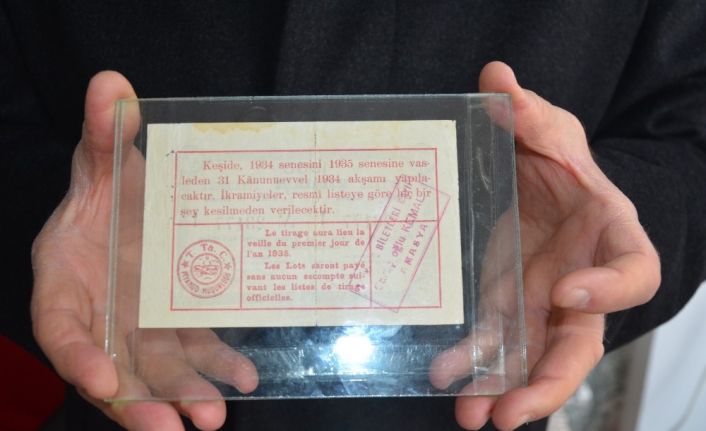 Keşide, 1934 senesini 1935 senesine vas-
leden 31 Kânunuevvel 1934 akşamı yapıla-
caktır. İkramiyeler, resmî listeye göre hiç bir
şey kesilmeden verilecektir.
Le tirage aura lieu la
veille du premier jour de
l'an 1935.
Les Lots seront payé
sans aucun escompte sui-
vant les listes de tirage
officielles.
T. Ta. C.
BİLETLERİ
oğlu KEMAL
AMASYA